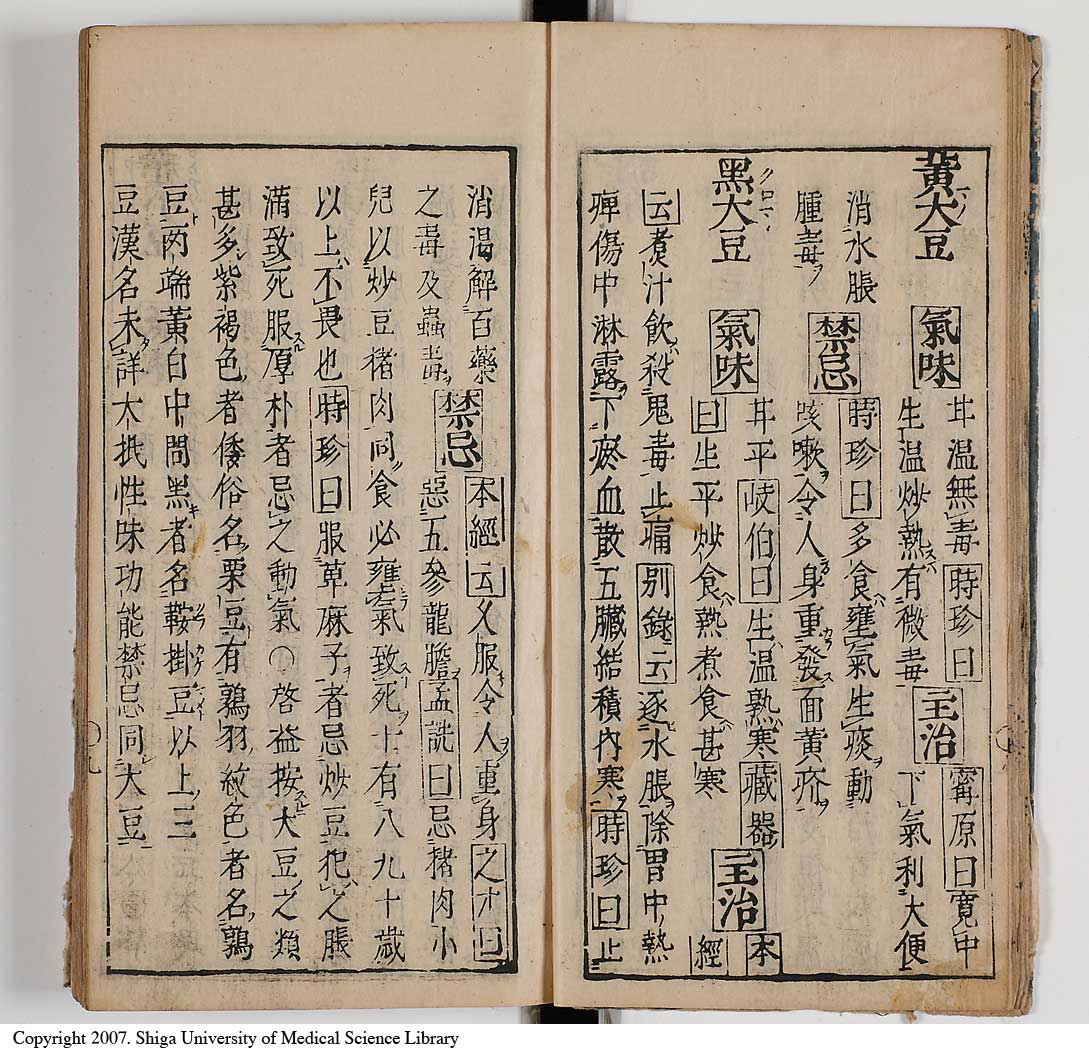 黃大豆
氣味
甘温無毒時珍曰
生温炒熱有微毒
主治
甯原曰寬中
下氣利大便
消水脹
腫毒
禁忌
時珍曰多食壅氣生痰動
咳嗽令人身重發面黃疥
黑大豆
氣味
甘平岐伯曰生温熟寒藏器
曰生平炒食熱煮食甚寒
主治
本
經
云煑汁飲殺鬼毒止痛別錄云逐水脹除胃中熱
痺傷中淋露下瘀血散五臟結積內寒時珍曰止
消渴解百藥
之毒及蟲毒
禁忌
本經云久服令人重身之才曰
惡五參龍膽孟詵曰忌猪肉小
兒以炒豆猪肉同食必壅氣致死十有八九十歲
以上不畏也時珍曰服草麻子者忌炒豆犯之脹
滿致死服厚朴者忌之動氣〇啓益按大豆之類
甚多紫褐色者倭俗名栗豆有鶉羽紋色者名鶉
豆兩端黃白中間黑者名鞍掛豆以上三
豆漢名未詳大抵性味功能禁忌同大豆
Copyright 2007. Shiga University of Medical Science Library